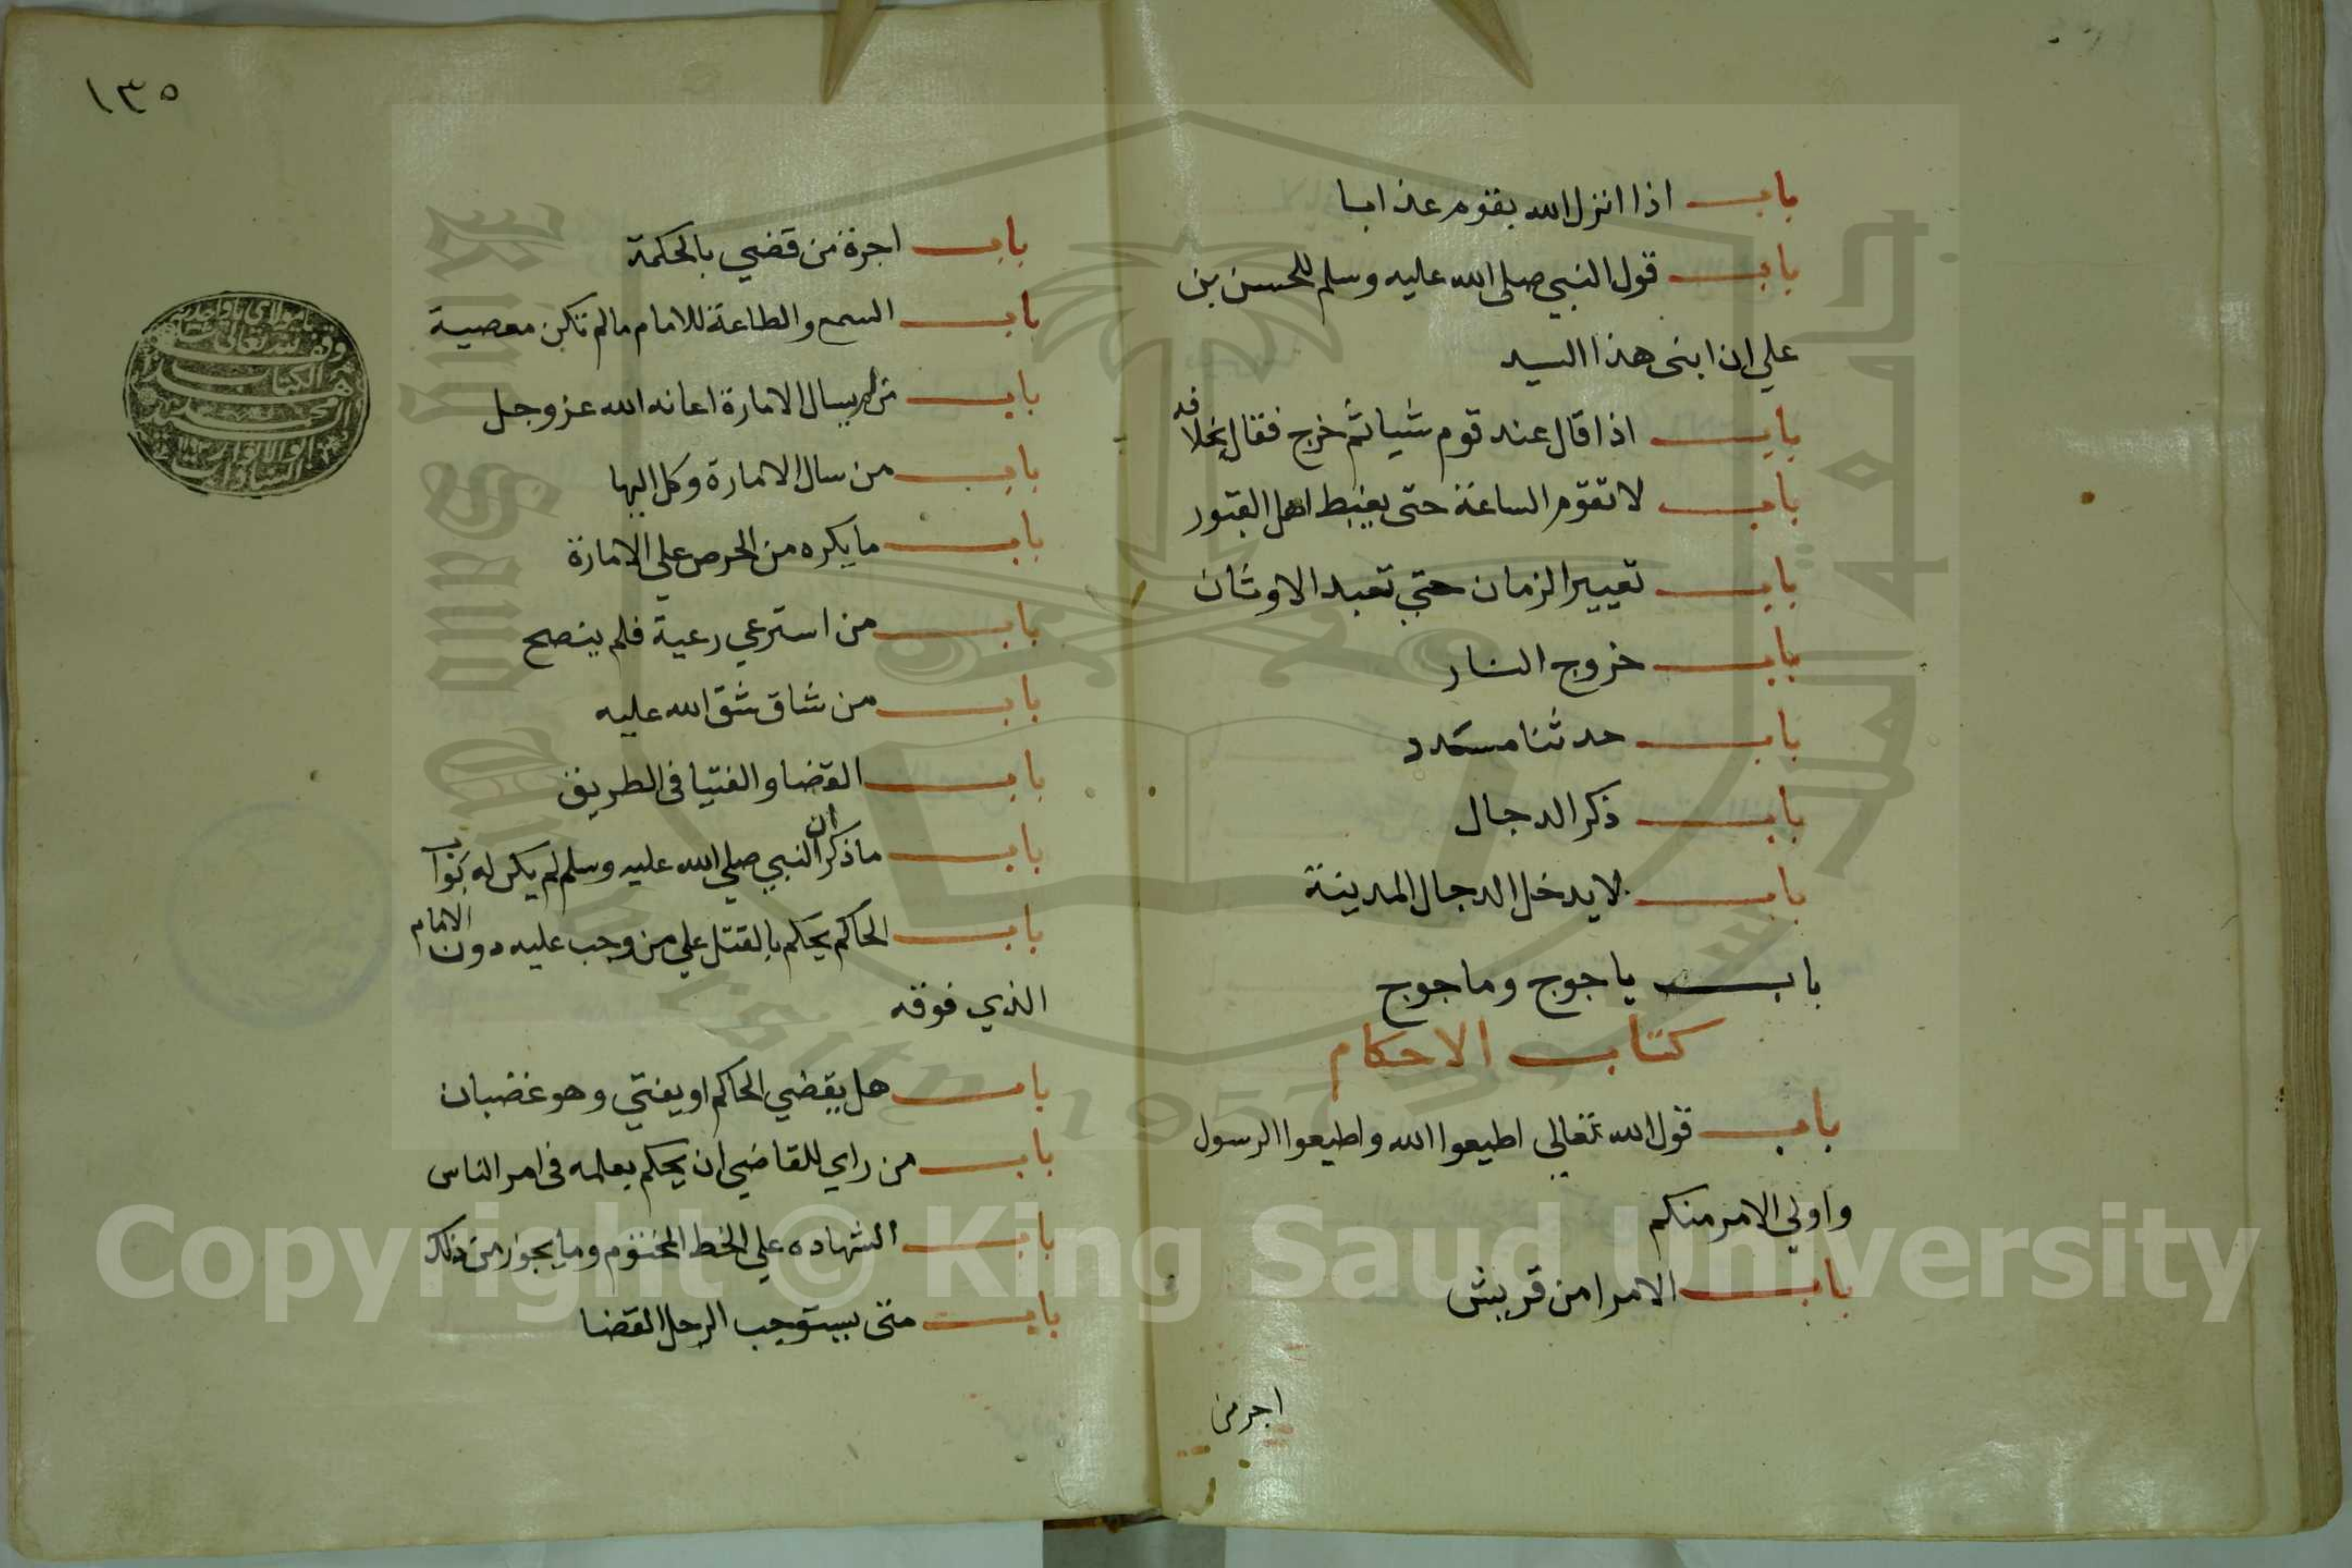 باب اذا انزل الله بقوم عذابا
باب قول النبي صلى الله عليه وسلم للحسن بن
علي ان ابنى هذا السيد
باب اذا قال عند قوم شيا ثم خرج فقال بخلافه
باب لا تقوم الساعة حتى يغبط اهل القبور
باب تغيير الزمان حتي تعبد الاوثان
باب خروج النار
باب حدثنا مسدد
باب ذكر الدجال
باب لا يدخل الدجال المدينة
باب ياجوج وماجوج
كتاب الاحكام
باب قول الله تعالي اطيعوا الله واطيعوا الرسول
واولي الامر منكم
باب الامرا من قريش
اجر من
١٣٥
باب اجرة من قضي بالحكمة
باب السمع والطاعة للامام مالم تكن معصية
باب من لم يسال الامارة اعانه الله عز وجل
باب من سال الامارة وكل اليها
باب ما يكره من الحرص علي الامارة
باب من استرعي رعية فلم ينصح
باب من شاق شق الله عليه
باب القضا والفتيا في الطريق
باب ما ذكر ان النبي صلي الله عليه وسلم لم يكن له بواب
باب الحاكم يحكم بالقتل علي من وجب عليه دون الامام
الذي فوقه
باب هل يقضي الحاكم او يفتي وهو غضبان
باب من راي للقاضي ان يحكم بعلمه في امر الناس
باب الشهاده علي الخط المختوم وما يجوز من ذلك
باب متى يستوجب الرجل القضا
وقف لله تعالى
الكتاب
Copyright © King Saud University
1957